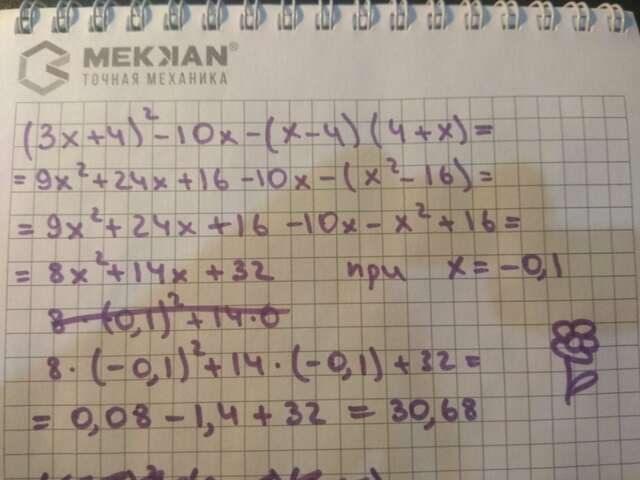 MEKKAN®
ТОЧНАЯ МЕХАНИКА
(3x+4)²-10x-(x-4)(4+x)=
=9x²+24x+16-10x-(x²-16)=
=9x²+24x+16-10x-x²+16=
=8x²+14x+32 при x=-0,1
8·(-0,1)²+14·(-0,1)+32=
=0,08-1,4+32=30,68